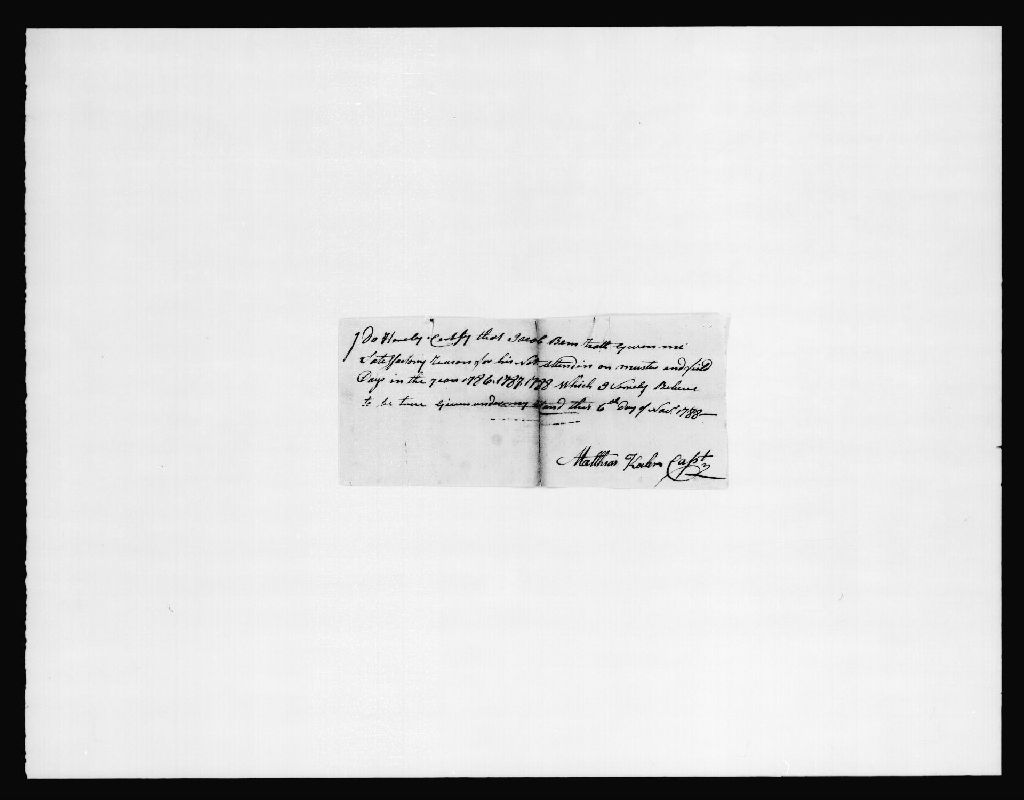 I Do Hereby Certify that Jacob Bem hath Given me
Sattesfactory Reasons for his Not attendin on muster and field
Days in the years 1786, 1787, 1788 Which I Verely Believe
to be true Given under my Hand this 6th Day of Nov 1788
Matthias Capt